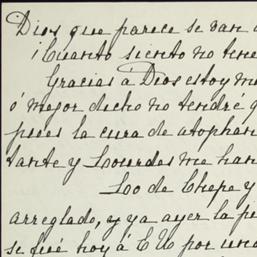 Dios que parece se van a
¡Cuanto siento no tene
Gracias á Dios estoy me
ó mejor dicho no tendré q
pues la cura de atophan
tante y Lourdes me han
Loo de Chepe y
arreglado, y ya ayer la pe
se fué hoy á E U por una